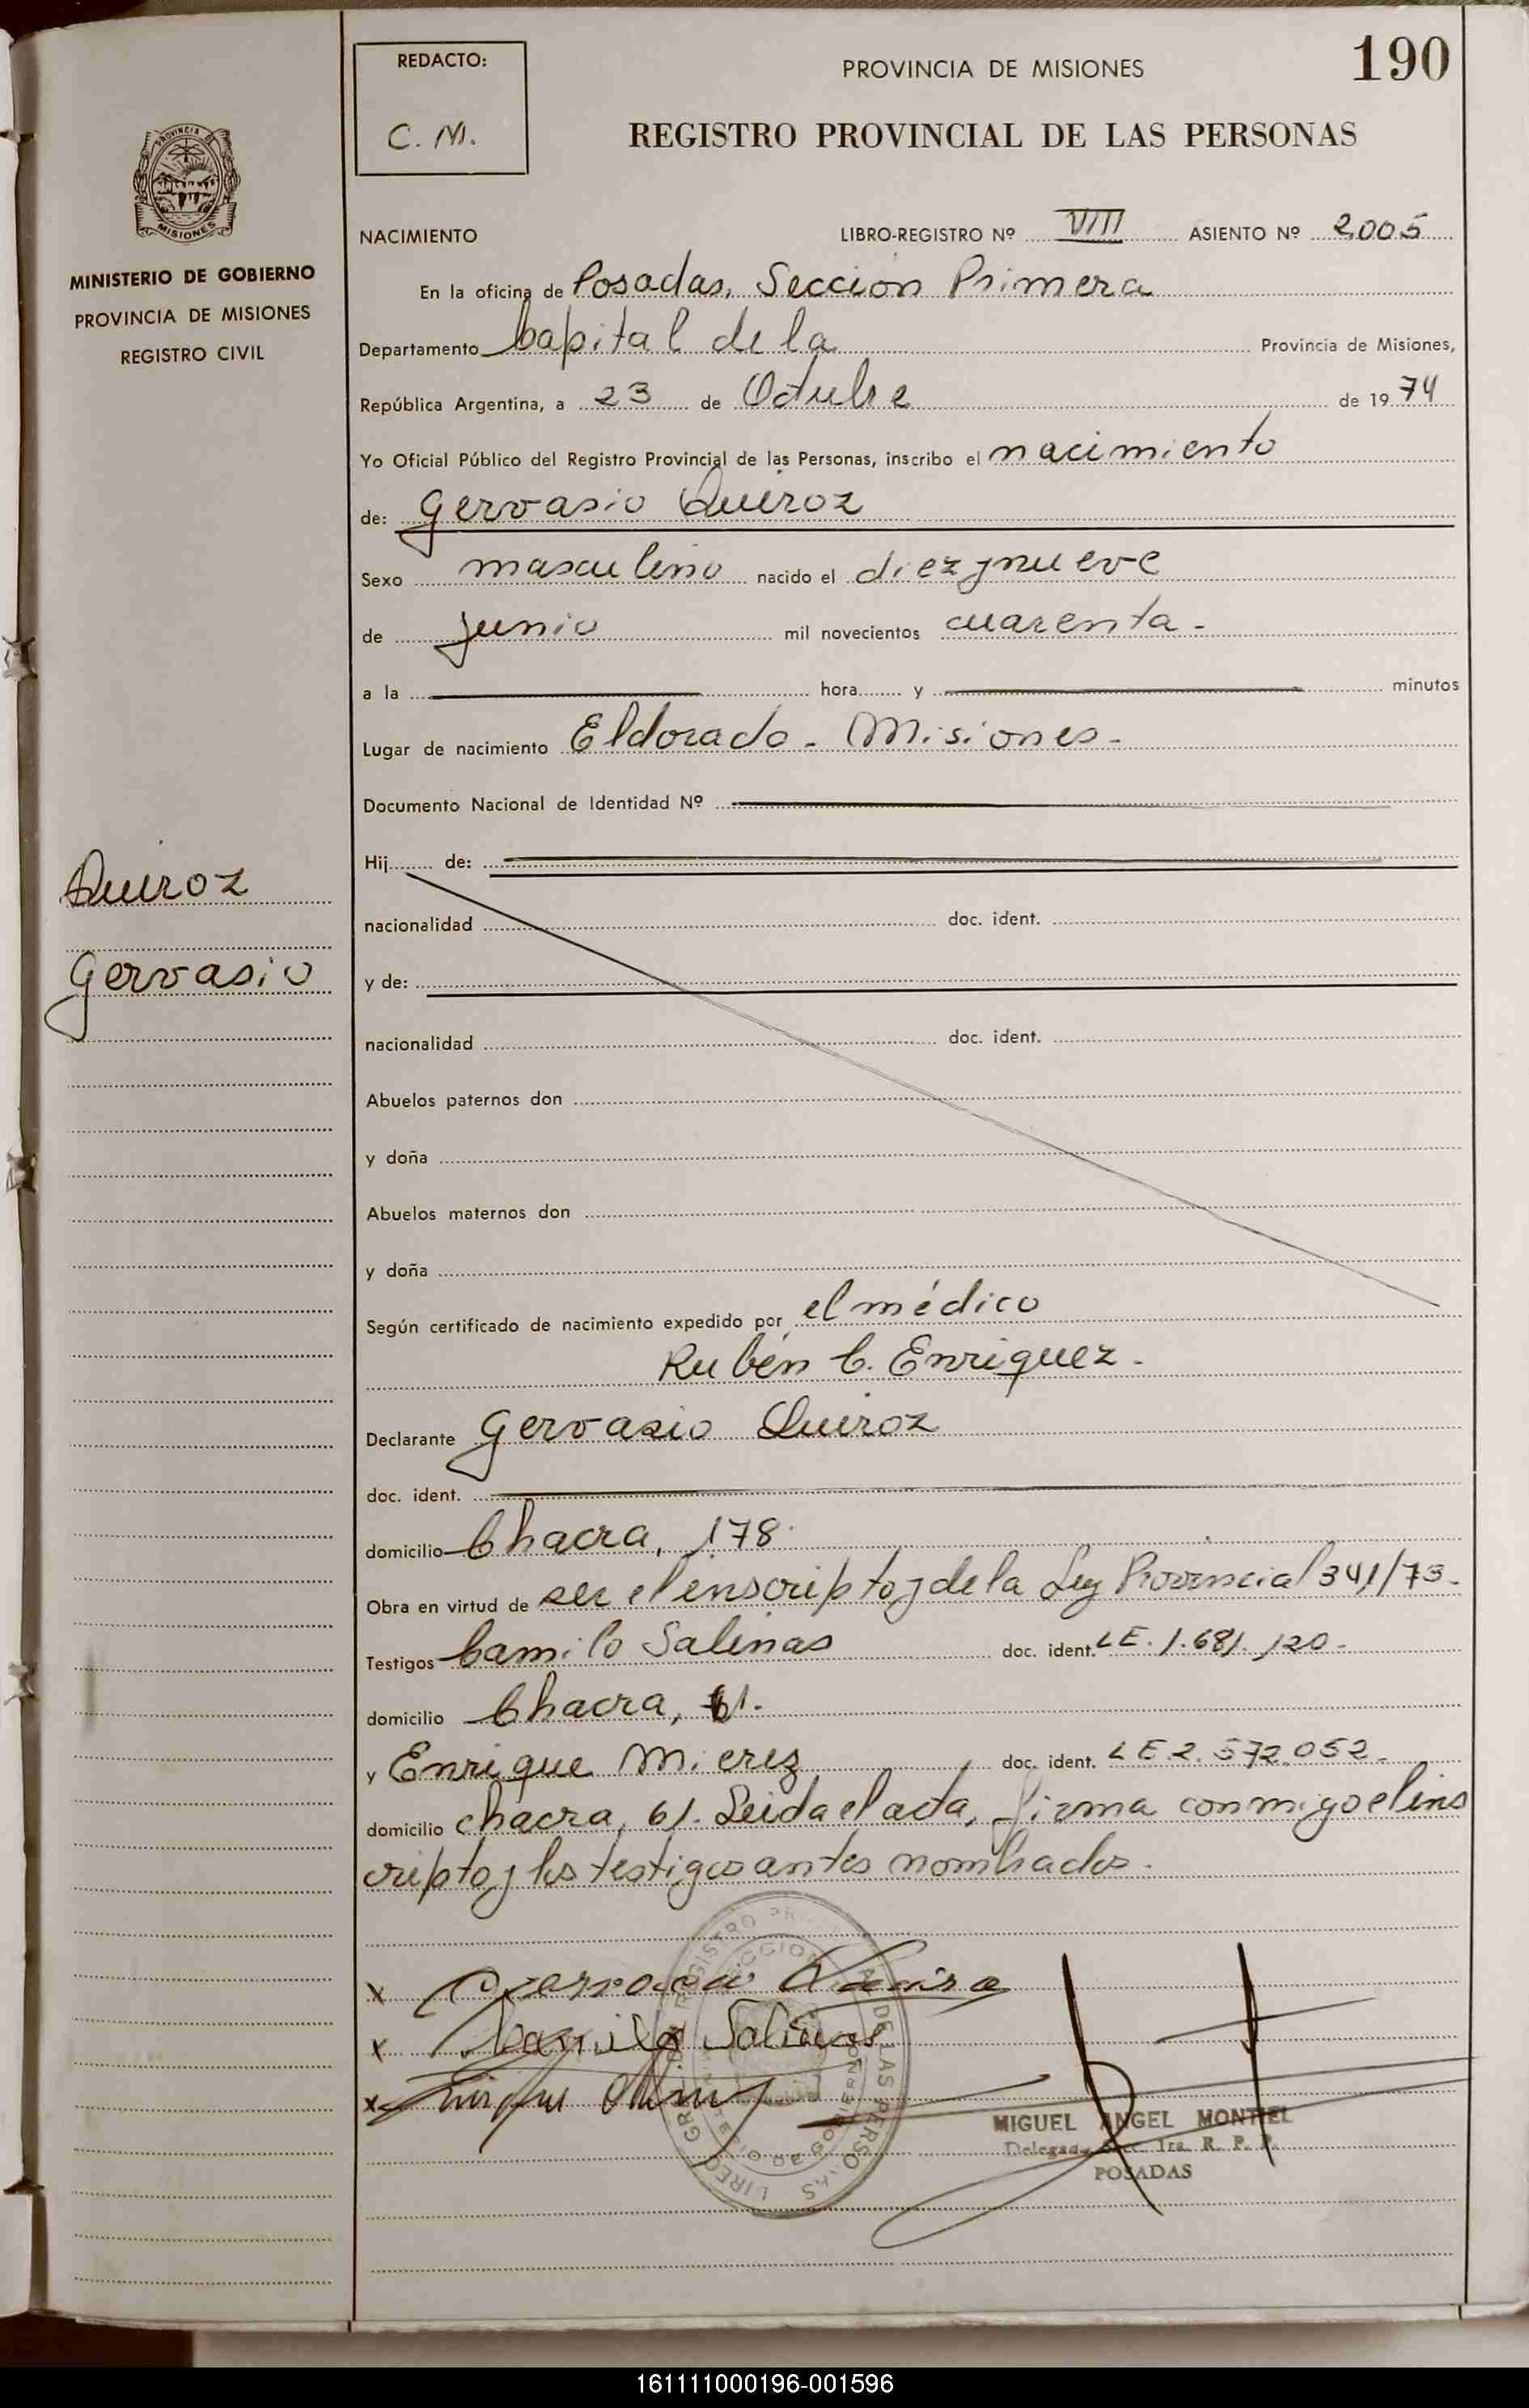 190
REDACTO:
C. M.
PROVINCIA DE MISIONES
REGISTRO PROVINCIAL DE LAS PERSONAS
PROVINCIA DE
MISIONES
MINISTERIO DE GOBIERNO
PROVINCIA DE MISIONES
REGISTRO CIVIL
Quiroz
Gervasio
NACIMIENTO LIBRO-REGISTRO Nº VIII ASIENTO Nº 2005
En la oficina de Posadas, Sección Primera
Departamento Capital de la Provincia de Misiones,
República Argentina, a 23 de Octubre de 1974
Yo Oficial Público del Registro Provincial de las Personas, inscribo el nacimiento
de: Gervasio Quiroz
Sexo masculino nacido el diez y nueve
de junio mil novecientos cuarenta-
a la hora y minutos
Lugar de nacimiento Eldorado - Misiones-
Documento Nacional de Identidad Nº
Hij de:
nacionalidad doc. ident.
y de:
nacionalidad doc. ident.
Abuelos paternos don
y doña
Abuelos maternos don
y doña
Según certificado de nacimiento expedido por el médico
Rubén C. Enriquez-
Declarante Gervasio Quiroz
doc. ident.
domicilio Chacra, 178.
Obra en virtud de ser el inscripto y de la Ley Provincial 341/73-
Testigos Camilo Salinas doc. ident. LE. 1.681.120-
domicilio Chacra, 61.
y Enrique Mierez doc. ident. LE 2.572.052-
domicilio chacra, 61. Leida el acta, firma conmigo el ins
cripto y los testigos antes nombrados.
x Gervasio Quiroz
x Camilo Salinas
x
MIGUEL ANGEL MONTIEL
Delegado Secc. 1ra. R. P. P.
POSADAS
161111000196-001596